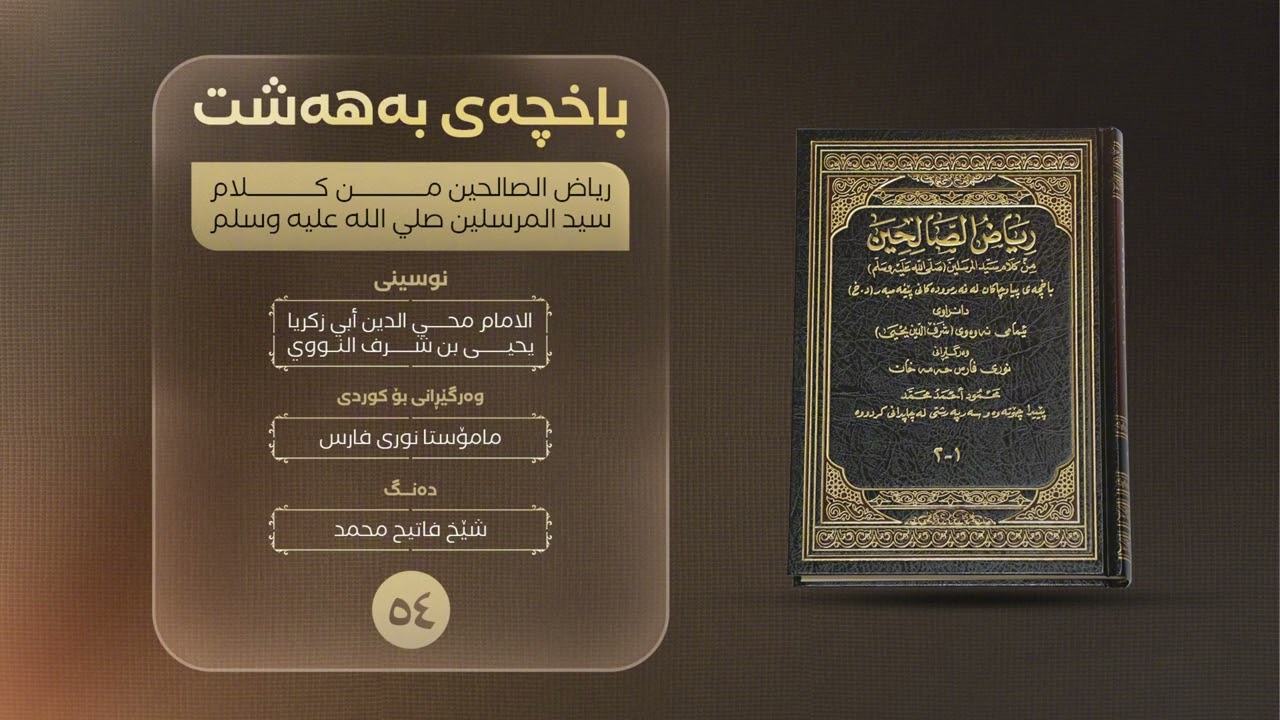 باخچەی بەهەشت
رياض الصالحين مـــن كـــلام
سيد المرسلين صلي الله عليه وسلم
نوسینی
الامام محـــي الدين أبي زكريا
يحيـــى بن شـــرف النـــووي
وەرگێڕانی بۆ کوردی
مامۆستا نوری فارس
دەنـــگ
شێخ فاتیح محمد
٥٤
رِيَاضُ الصَّالِحِينَ
مِنْ كَلَام سَيِّد المرسَلين (صَلّى اللهُ عَلَيْهِ وَسَلَّم)
باخچەی پیاوچاکان لە فەرموودەکانی پێغەمبەر (د.خ)
دانراوی
ئیمامی نەوەوی (شَرَفُ الدِّين يَحْيَى)
وەرگێڕانی
نوری فارس حەمە خان
مَحْمُود أَحْمَدْ مُحَمَّد
پێیدا چۆتەوە و سەرپەرشتی لە چاپدانی کردووە
١-٢